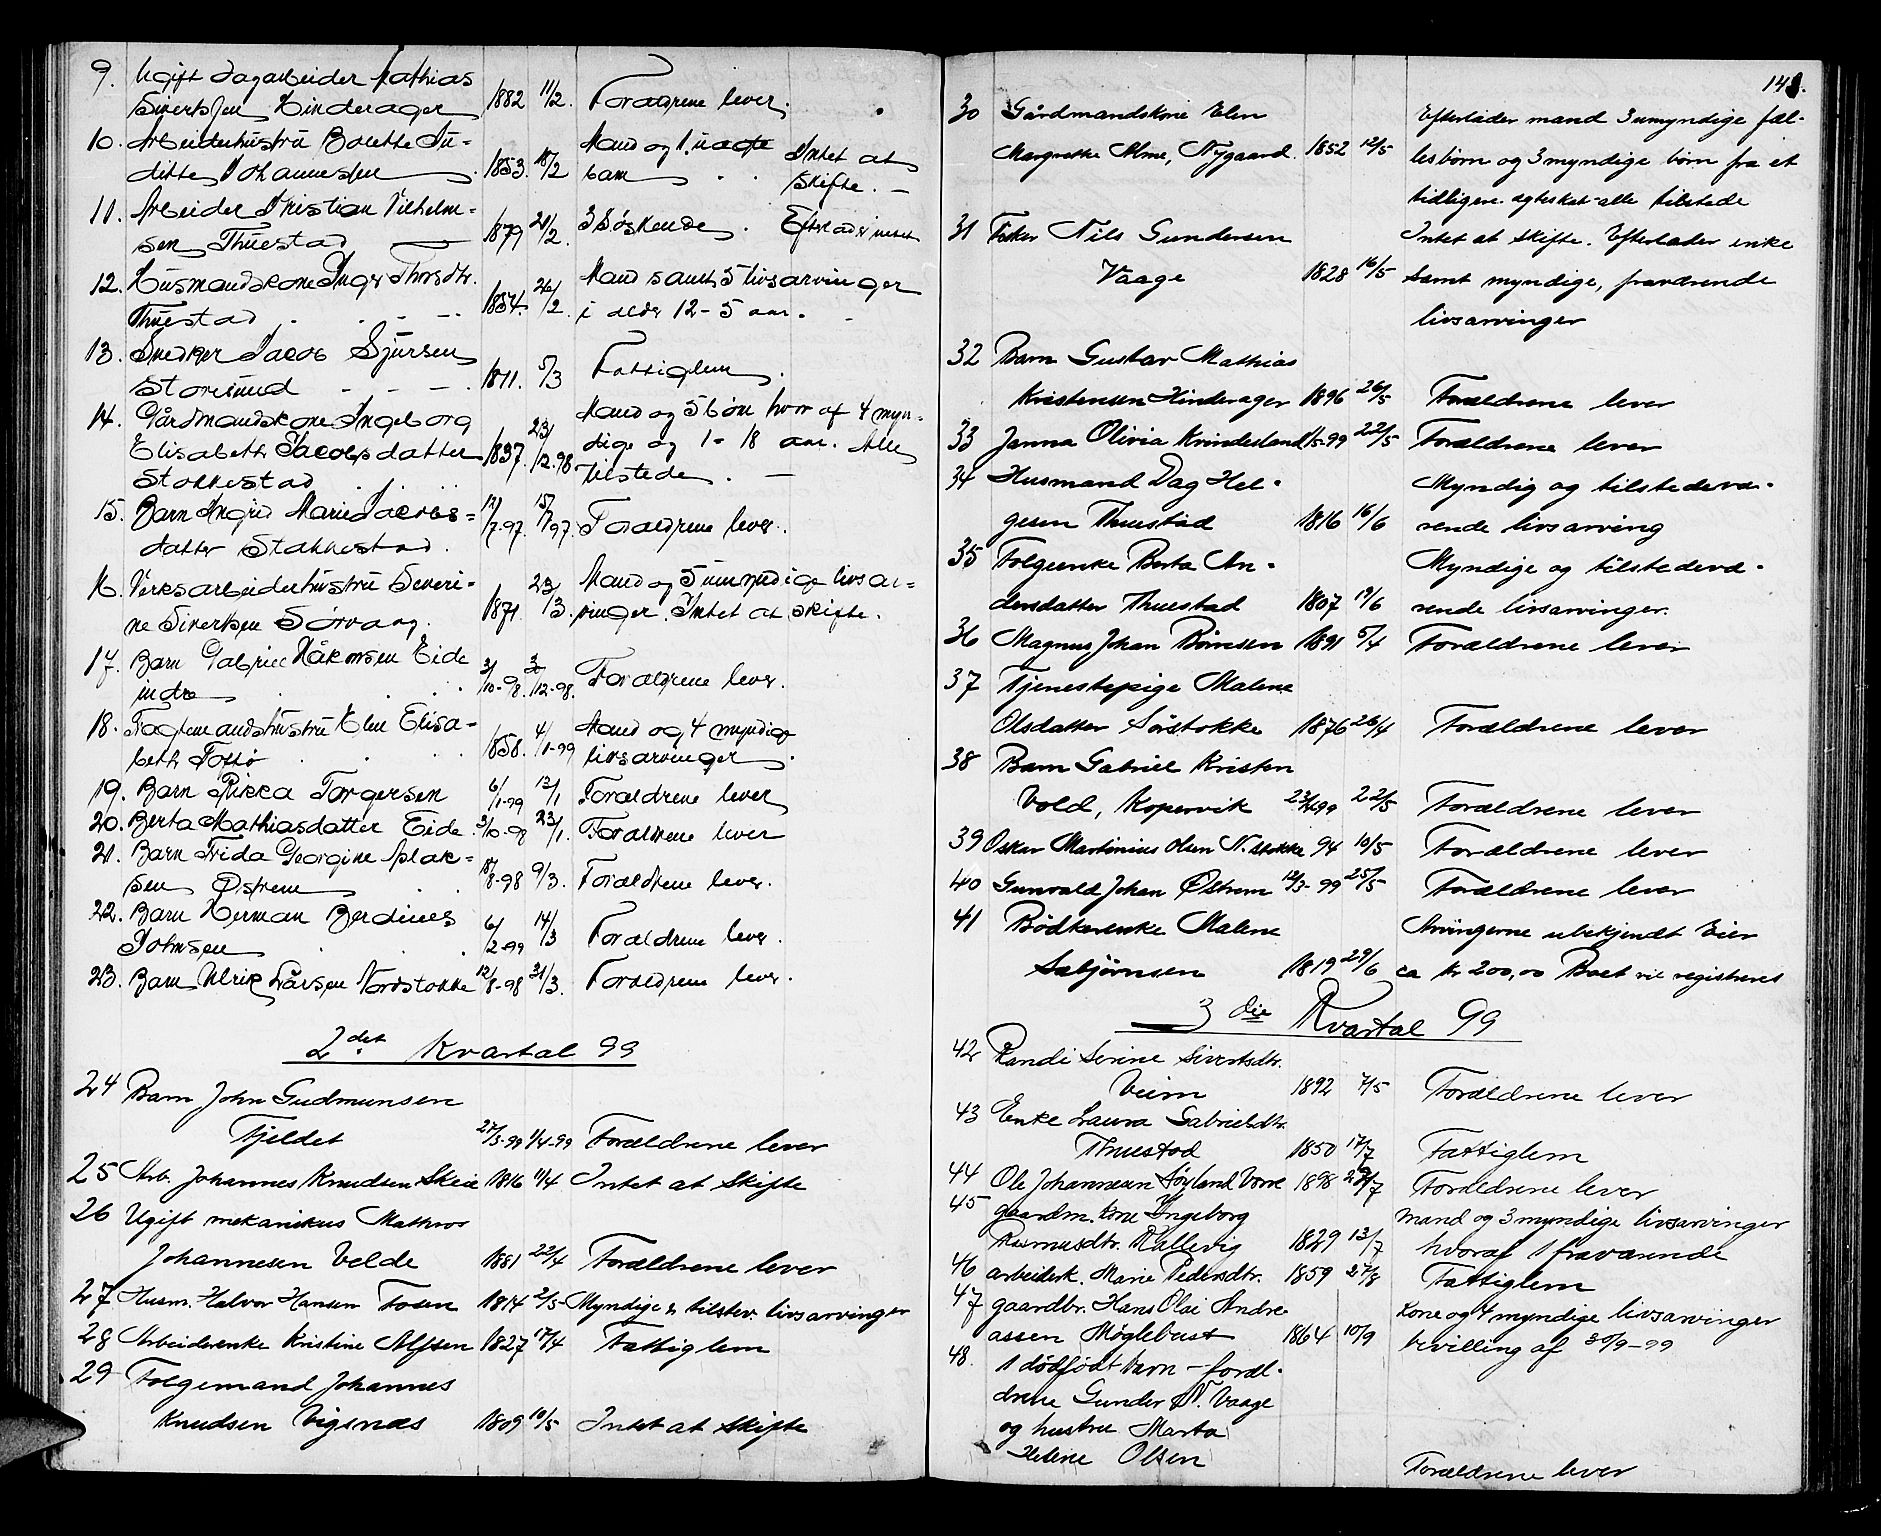 9. Ugift dagarbeider Mathias
Sivertsen Hinderager 1882 11/2. Forældrene lever.
10. Arbeiderhustru Bolette Ju-
ditte Johannesen 1853. 18/2 Mand og 1 uægte barn . . Intet at skifte. -
11. Arbeider Kristian Vilhelm-
sen Thuestad 1879 21/2. 3 Søskende. Efterlader intet
12. Husmandskone Inger Thorsdtr.
Thuestad . . 1854. 26/2. Mand samt 5 livsarvinger
i alder 12-5 aar.
13. Snedker Jacob Sjursen
Storesund - - - . 1811. 5/3 Fattiglem.
14. Gårdmandskone Ingeborg
Elisabeth Jacobsdatter
Stokkestad 1837. 23/12-98 Mand og 5 børn hvor af 4 myn-
dige og 1 - 18 aar. Alle
tilstede. -
15. Barn Ingrid Marie Jacobs-
datter Stakkestad. 12/7-97. 15/7 97. Forældrene lever.
16. Verksarbeiderhustru Severi-
ne Sivertsen Sörvaag. 1871. 23/3. Mand og 5 umyndige livsar-
vinger. Intet at skifte.
17. Barn Gabriel Håkonsen Eide
indre 3/10-98. 3/12-98. Forældrene lever.
18. Fragtemandshustru Elen Elisa-
beth Fosso 1858. 4/1-99 Mand og 4 myndige
livsarvinger.
19. Barn Rikka Torgersen 6/1-99 13/1 Forældrene lever
20. Berta Mathiasdatter Eide. 3/10-98 23/1. Forældrene lever
21. Barn Frida Georgine Aplak-
sen Østrem 18/8-98 9/3. Forældrene lever.
22. Barn Herman Berdines
Johnsen 6/2-99 14/3 Forældrene lever.
23. Barn Ulrik Larsen Nordstokke 12/8-98 31/3. Forældrene lever.
2det Kvartal 99
24 Barn John Gudmunsen
Fjeldet 27/3-99 1/4-99 Forældrene lever
25 Arb. Johannes Knudsen Skeie 1816 11/4 Intet at Skifte
26 Ugift mekanikus Mathias
Johannesen Velde 1881 22/4 Forældrene lever
27 Husm. Halvor Hansen Fosen 1814 2/5 Myndige & tilstev. livsarvinger
28 Arbeiderenke Kristine Alfsen 1827 17/4 Fattiglem
29 Folgemand Johannes
Knudsen Vigsnæs 1809 10/5 Intet at Skifte
148.
30 Gårdmandskone Elen
Margrethe Alme, Nygaard. 1852 12/5 Efterlader mand 3 umyndige fæl-
lesbørn og 3 myndige børn fra et
tidligere egteskab-alle tilstede
31 Fisker Nils Gundersen
Vaage 1828 16/5 Intet at skifte. Efterlader enke
samt myndige, fraværende
livsarvinger
32 Barn Gustav Mathias
Kristensen Hinderager 1896 26/5 Forældrene lever
33 Janna Olivia Kvindesland 1/5-99 22/5 Forældrene lever
34 Husmand Dag Hel-
gesen Thuestad 1816 16/6 Myndig og tilstedevæ-
rende livsarving
35 Folgeenke Berta An-
dersdatter Thuestad 1807 19/6 Myndige og tilstedevæ-
rende livsarvinger.
36 Magnus Johan Børnsen 1891 5/4 Forældrene lever
37 Tjenestepige Malene
Olsdatter Sörstokke 1876 26/4 Forældrene lever
38 Barn Gabriel Kristen
Vold, Kopervik 23/4 99 22/5 Forældrene lever
39 Oskar Martinius Olsen N. Stokke 94 10/5 Forældrene lever
40 Gunvald Johan Østrem 12/3-99 25/5 Forældrene lever
41 Bödkerenke Malene
Sæbjørnsen 1819 29/6 Arvingerne ubekjendt Eier
ca kr 200,00 Boet vil registreres
3die Kvartal 99
42 Randi Serine Sivertsdtr.
Veim 1892 7/5 Forældrene lever
43 Enke Laura Gabrielsdtr.
Thuestad 1850 17/7 Fattiglem
44 Ole Johannesen Höyland Vorre 1898 29/7 Forældrene lever
45 gaardm. kone Ingeborg
Rasmusdtr. Kallevig 1829 13/7 Mand og 3 myndige livsarvinger
hvoraf 1 fraværende
46 arbeiderk. Marie Pedersdtr. 1859 27/8 Fattiglem
47 gaardbr. Hans Olai Andre
assen Møglebust 1864 10/9 Kone og 4 myndige livsarvinger
bevilling af 30/9-99
48. 1 dödfødt barn - foræl-
drene Gunder N. Vaage
og hustru Marta
Helene Olsen Forældrene lever